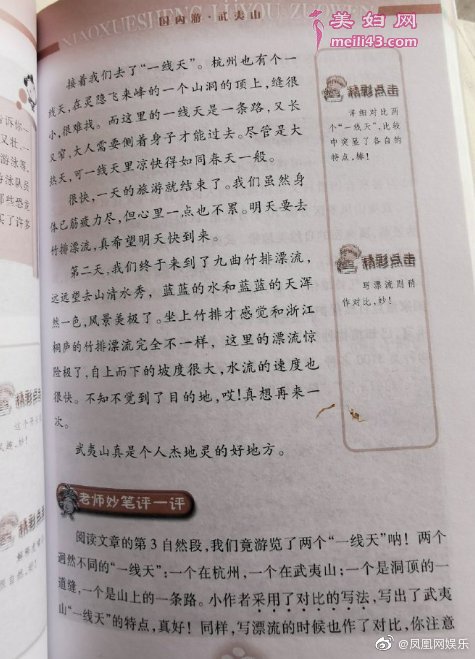 XIAOXUESHENG LÜYOU ZUOWEN
国内游·武夷山
美妇网
meili43.com
接着我们去了“一线天”。杭州也有个一
线天,在灵隐飞来峰的一个山洞的顶上,缝很
小,很难找。而这里的一线天是一条路,又长
又窄,大人需要侧着身子才能过去。尽管是大
热天,可一线天里凉快得如同春天一般。
很快,一天的旅游就结束了。我们虽然身
体已筋疲力尽,但心里一点也不累。明天要去
竹排漂流,真希望明天快到来。
第二天,我们终于来到了九曲竹排漂流,
远远望去山清水秀,蓝蓝的水和蓝蓝的天浑
然一色,风景美极了。坐上竹排才感觉和浙江
桐庐的竹排漂流完全不一样,这里的漂流惊
险极了,自上而下的坡度很大,水流的速度也
很快。不知不觉到了目的地,哎!真想再来一
次。
武夷山真是个人杰地灵的好地方。
精彩点击
详细对比两
个“一线天”,比较
中突显了各自的
特点,棒!
精彩点击
写漂流同样
作对比,妙!
老师妙笔评一评
阅读文章的第3自然段,我们竟游览了两个“一线天”呐!两个
迥然不同的“一线天”:一个在杭州,一个在武夷山;一个是洞顶的一
道缝,一个是山上的一条路。小作者采用了对比的写法,写出了武夷
山“一线天”的特点,真好!同样,写漂流的时候也作了对比,你注意
告诉你一
又壮,一
游泳等
泳队员
那些恐龙
买了许多
@凤凰网娱乐